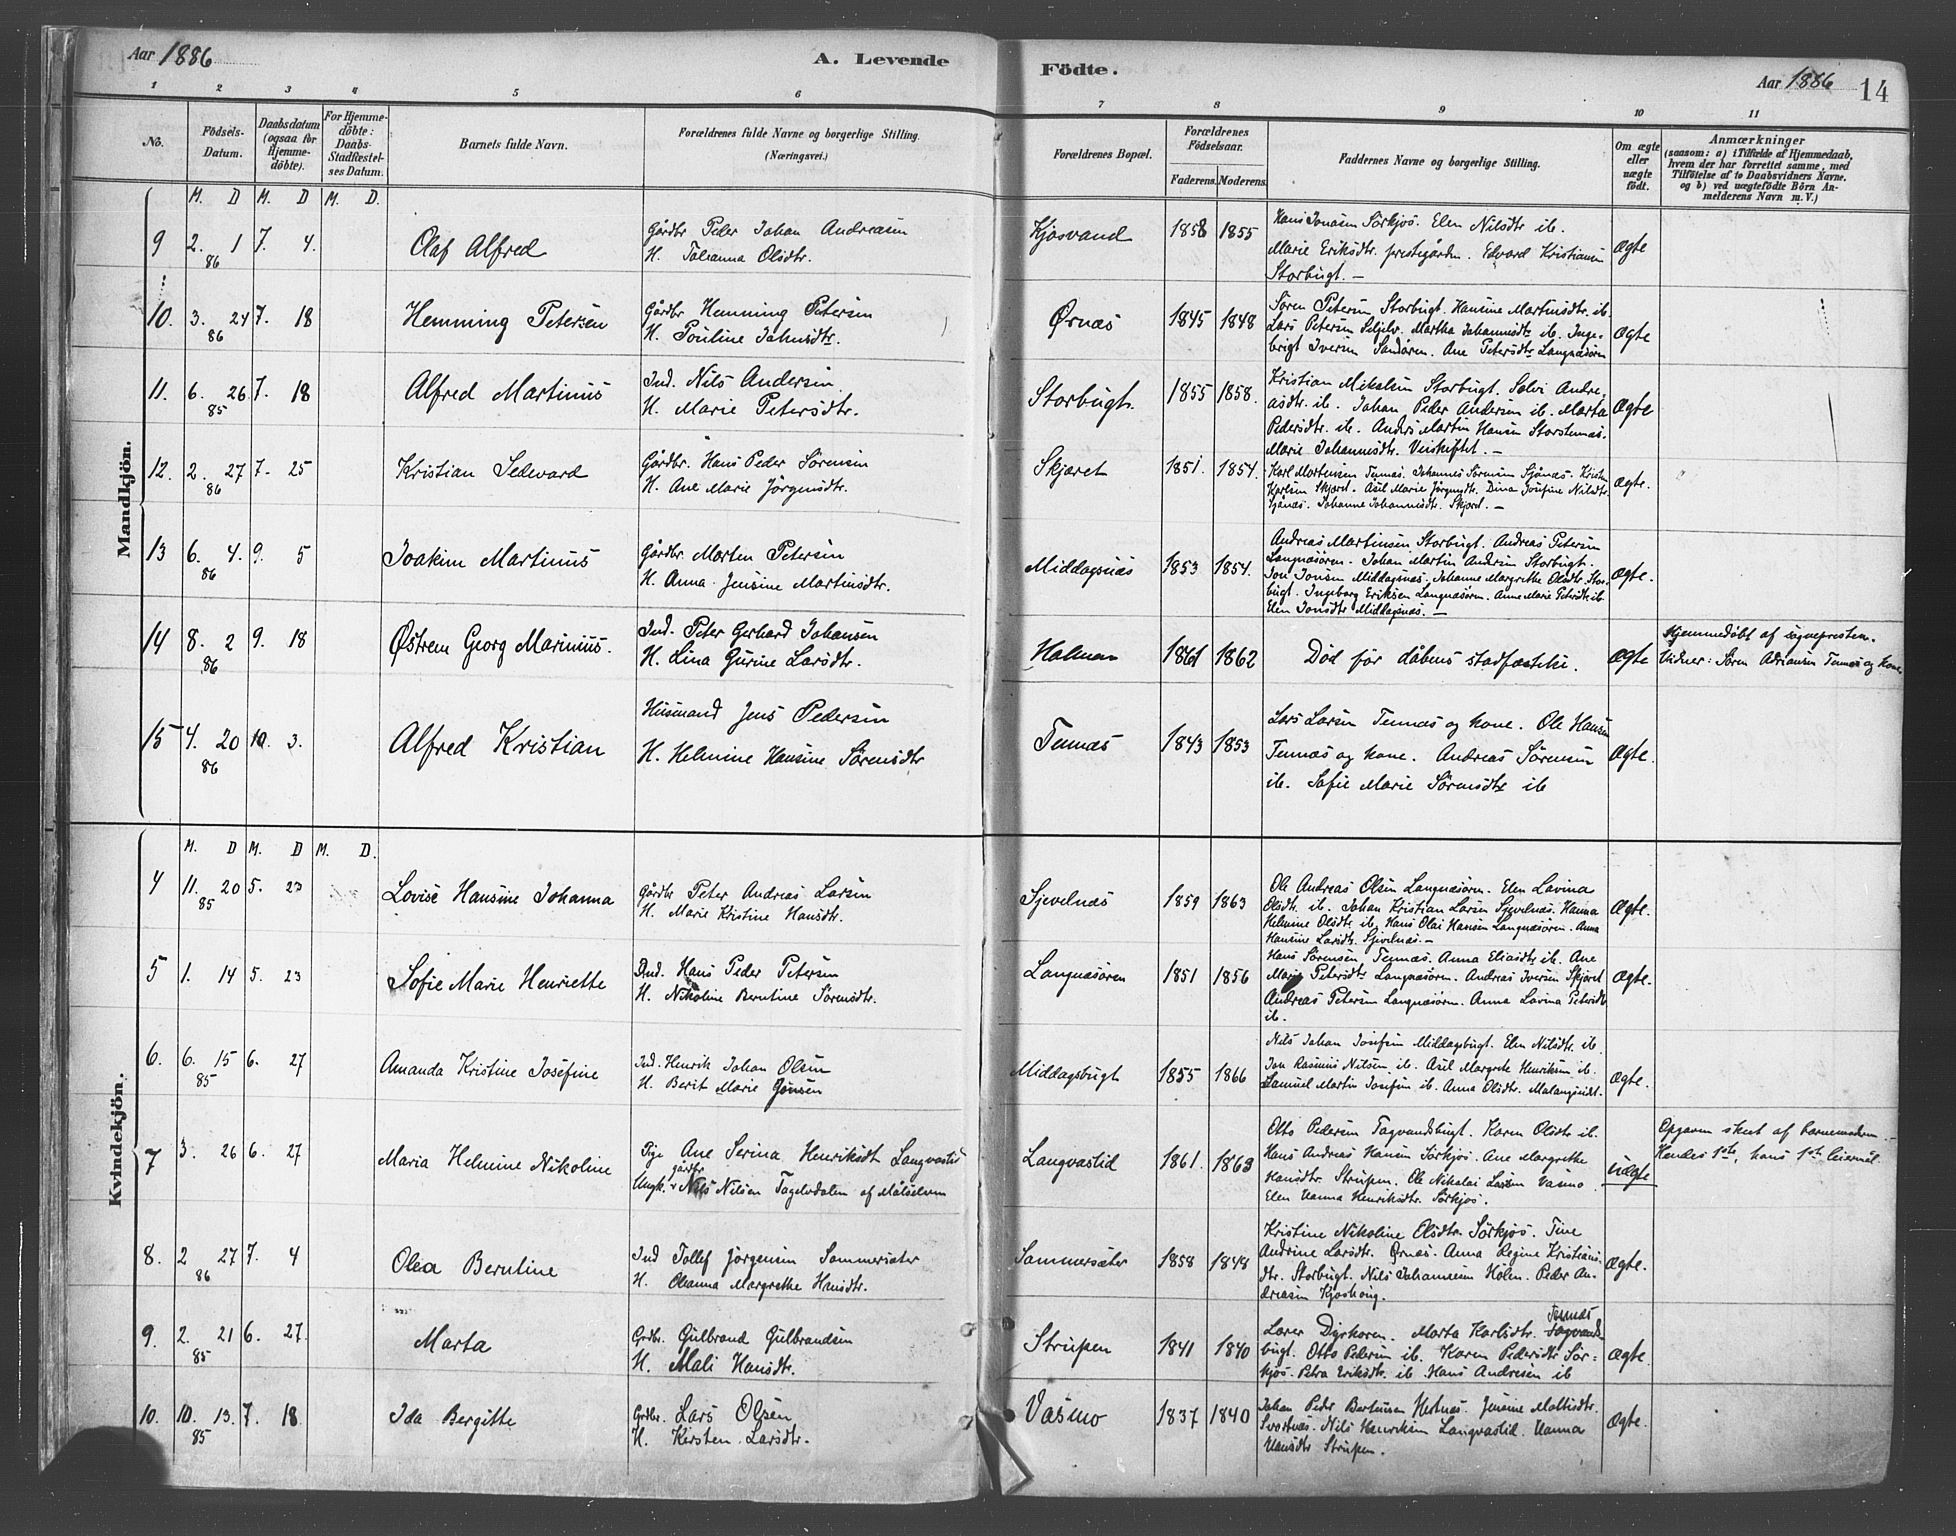 Aar 1886
A. Levende
Födte.
Aar 1886
14
1 2 3 4 5 6 7 8 9 10 11
No.
Födsels-
Datum.
Daabsdatum
(ogsaa for
Hjemme-
döbte).
For Hjemme-
döbte:
Daabs-
Stadfæstel-
ses Datum.
Barnets fulde Navn.
Forældrenes fulde Navne og borgerlige Stilling.
(Næringsvei.)
Forældrenes Bopæl.
Forældrenes
Födselsaar.
Faderens. Moderens.
Faddernes Navne og borgerlige Stilling.
Om ægte
eller
uægte
födt.
Anmærkninger
(saasom: a) i Tilfælde af Hjemmedaab,
hvem der har forrettet samme, med
Tilföielse af to Daabsvidners Navne.
og b) ved uægtefödte Börn An-
melderens Navn m. V.)
Mandkjön.
M. D M. D M. D.
9 2. 1 7. 4.
86
Olaf Alfred
Gårdbr Peder Johan Andreasen
H. Johanna Olsdtr.
Kjosvand
1858 1855
Hans Jonasen Sörkjos. Elen Nilsdtr ib.
Marie Eriksdtr. prestegården. Edvard Kristiansen
Storbugt. —
Ægte
10. 3. 24 7. 18
86
Hemming Petersen
Gårdbr Hemming Petersen
H. Pouline Johnsdtr.
Ørnæs
1845 1848
Sören Petersen Storbugt. Hansine Martinsdtr. ib.
Lars Petersen Seljelv. Martha Johannesdtr ib. Inge-
brigt Iversen Sandören. Ane Petersdtr Langnæsören
Ægte
11. 6. 26. 7. 18
85
Alfred Martinus
Ind. Nils Andersen
H. Marie Petersdtr.
Storbugt.
1855 1858.
Kristian Mikalsen Storbugt. Sølvi Andre-
asdtr. ib. Johan Peder Andersen ib. Marta
Pedersdtr. ib. Anders Martin Hansen Storstennæs.
Marie Johannesdtr.
Ægte
12. 2. 27 7. 25
86
Kristian Sedevard
Gårdbr. Hans Peder Sörensen
H. Ane Marie Jörgensdtr.
Skjæret
1851. 1854.
Karl Mortensen Tennæs. Johannes Sörensen Sjånæs. Kristen
Karlsen Skjæret. Asel Marie Jörgensdtr. Dina Josefine Nilsdtr.
Sjånæs. Johanne Johannesdtr. Skjæret. —
Ægte.
13 6. 4. 9. 5
86
Joakim Martinus
Gårdbr. Morten Petersen
H. Anna Jensine Martinsdtr.
Middagsnæs
1853 1854.
Andreas Martinsen Storbugt. Andreas Petersen
Langnæsören. Johan Martin Andersen Storbugt.
Jon Jonsen Middagsnæs. Johanne Margrethe Olsdtr. Stor-
bugt. Ingeborg Eriksen Langnæsören. Anne Marie Petersdtr. ib.
Elen Jonsdtr Middagsnæs. —
Ægte.
14 8. 2 9. 18
86
Østrem Georg Marinius.
Ind. Peter Gerhard Johansen
H. Lina Gurine Larsdtr.
Holmen
1861 1862
Död för dåbens stadfæstelse.
Ægte
Hjemmedöbt af sognepresten.
Vidner: Sören Adriansen Tennæs og kone.
15 4. 20 10. 3.
86
Alfred Kristian
Husmand Jens Pedersen
H. Helmine Hansine Sörensdtr
Tennæs
1843 1853
Lars Larsen Tennæs og kone. Ole Hansen
Tennæs og kone. Andreas Sörensen
ib. Sofie Marie Sörensdtr ib
Ægte.
Kvindekjön.
M. D M. D M. D.
4 11. 20 5. 23
85
Lovise Hansine Johanna
Gårdbr Peter Andreas Larsen
H. Marie Kristine Hansdtr.
Sjevelnæs
1859 1863
Ole Andreas Olsen Langnæsören. Elen Lavina
Olsdtr. ib. Johan Kristian Larsen Sjevelnæs. Hanna
Helmine Olsdtr ib. Hans Olai Hansen Langnæsören. Anna
Hansine Larsdtr. Sjevelnæs. —
Ægte.
5 1. 14 5. 23
Sofie Marie Henriette
Ind. Hans Peder Petersen
H. Nikoline Berntine Sörensdtr.
Langnæsören
1851 1856
Hans Sörensen Tennæs. Anna Eliasdtr ib. Ane
Marie Petersdtr Langnæsören. Andreas Iversen Skjæret
Andreas Petersen Langnæsören. Anna Lovina Petersdtr
ib.
Ægte.
6. 6. 15 6. 27
85
Amanda Kristine Josefine
Ind. Henrik Johan Olsen
H. Berit Marie Jönsen
Middagsbugt
1855 1866
Nils Johan Josefsen Middagsbugt. Elen Nilsdtr. ib.
Jon Rasmus Nilsen ib. Asel Margrete Henriksen ib.
Samuel Martin Josefsen ib. Anna Olsdtr. Malangseidt.
Ægte.
7 3. 26 6. 27
Maria Helmine Nikoline
Pige Ane Serina Henriksdt Langvastid
gårdbr
Ungk. Nils Nilsen Tagelvdalen af Målselven
Langvastid
1861. 1863
Otto Pedersen Tagvandsbugt. Karen Olsdtr ib.
Hans Andreas Hansen Sörkjos. Ane Margrethe
Hansdtr. Strupen. Ole Nikolai Larsen Vasmo
Elen Hanna Henriksdtr. Sörkjos.
uægte
Opgaven skeet af barnemoderen. —
Hendes 1ste, hans 1ste leiermål.
8. 2 27 7. 4
86
Olea Berntine
Ind Tollef Jörgensen Sommersæter
H. Oleanna Margrethe Hansdtr.
Sommersæter
1858 1848
Kristine Nikoline Olsdtr. Sörkjos. Tine
Andrine Larsdtr. Ørnæs. Anna Regine Kristians-
dtr. Storbugt. Nils Johannesen Holm. Peder An-
dreasen
Ægte.
9. 2. 21 6. 27.
85
Marta
Grdbr. Gulbrand Gulbrandsen
H. Mali Hansdtr.
Strupen
1841 1840
Tennæs
Dyrkoren. Marta Karlsdtr. Tagvands-
bugt. Otto Pedersen ib. Karen Pedersdtr Sör-
kjos. Petra Eriksdtr. ib Hans Andresen ib
Ægte.
10. 10. 13. 7. 18.
85
Ida Bergitte
Grdbr. Lars Olsen
H. Kersten Larsdtr.
Vasmo
1837 1840
Johan Peder Berntsen Hestnæs. Jensine Mattisdtr.
Svartnæs. Nils Henriksen Langvastid. Hanna
Hansdtr Strupen.
Ægte.